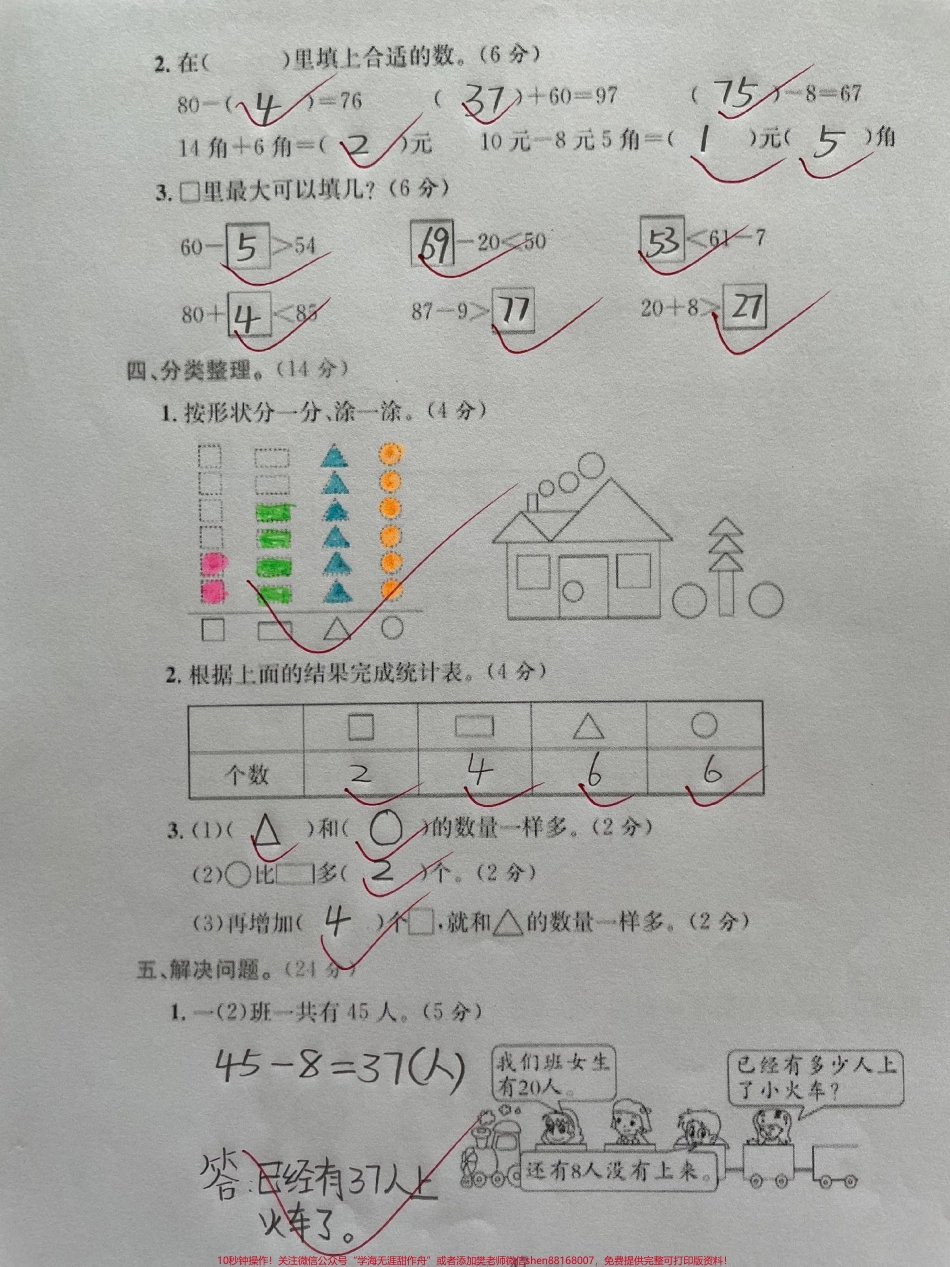 2. 在( )里填上合适的数。(6 分)
80-( 4 )=76 ( 37 )+60=97 ( 75 )-8=67
14 角+6 角=( 2 )元 10 元-8 元 5 角=( 1 )元( 5 )角
3. □里最大可以填几?(6 分)
60-5>54 69-20<50 53<61-7
80+4<85 87-9>77 20+8>27
四、分类整理。(14 分)
1. 按形状分一分、涂一涂。(4 分)
2. 根据上面的结果完成统计表。(4 分)
□ ▭ △ ○
个数 2 4 6 6
3. (1)( △ )和( ○ )的数量一样多。(2 分)
(2)○比▭多( 2 )个。(2 分)
(3)再增加( 4 )个□,就和△的数量一样多。(2 分)
五、解决问题。(24 分)
1. 一(2)班一共有 45 人。(5 分)
45-8=37(人)
我们班女生
有20人。
已经有多少人上
了小火车?
还有8人没有上来。
答:已经有37人上
火车了。
10秒钟操作!关注微信公众号“学海无涯甜作舟”或者添加樊老师微信shen88168007,免费提供完整可打印版资料!